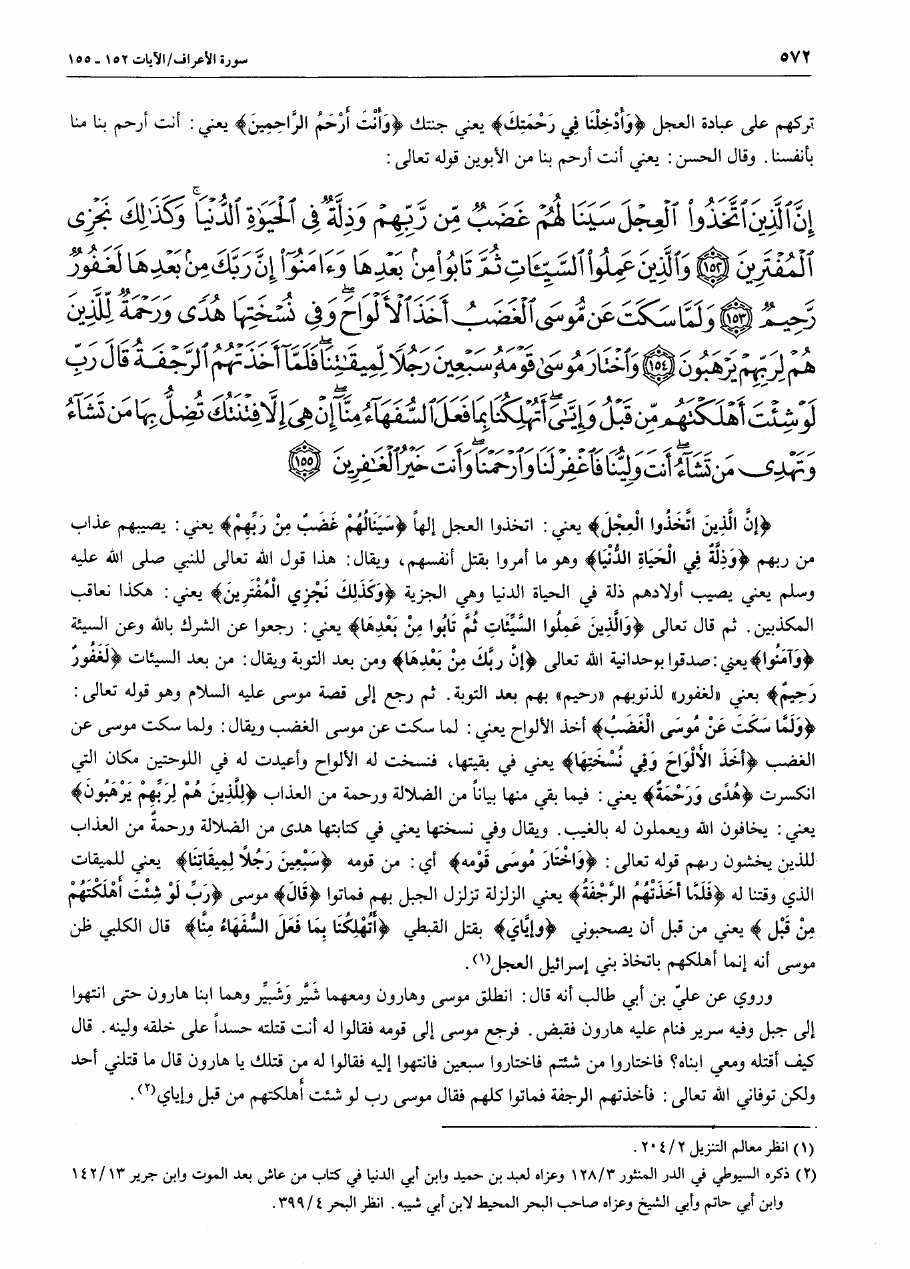 ٥٧٢ سورة الأعراف/الآيات ١٥٢ ـ ١٥٥
تركهم على عبادة العجل ﴿وَأَدْخِلْنَا فِي رَحْمَتِكَ﴾ يعني جنتك ﴿وَأَنْتَ أَرْحَمُ الرَّاحِمِينَ﴾ يعني: أنت أرحم بنا منا
بأنفسنا. وقال الحسن: يعني أنت أرحم بنا من الأبوين قوله تعالى:
إِنَّ ٱلَّذِينَ ٱتَّخَذُوا۟ ٱلْعِجْلَ سَيَنَالُهُمْ غَضَبٌ مِّن رَّبِّهِمْ وَذِلَّةٌ فِى ٱلْحَيَوٰةِ ٱلدُّنْيَا ۚ وَكَذَٰلِكَ نَجْزِى
ٱلْمُفْتَرِينَ ﴿١٥٢﴾ وَٱلَّذِينَ عَمِلُوا۟ ٱلسَّيِّـَٔاتِ ثُمَّ تَابُوا۟ مِنۢ بَعْدِهَا وَءَامَنُوٓا۟ إِنَّ رَبَّكَ مِنۢ بَعْدِهَا لَغَفُورٌ
رَّحِيمٌ ﴿١٥٣﴾ وَلَمَّا سَكَتَ عَن مُّوسَى ٱلْغَضَبُ أَخَذَ ٱلْأَلْوَاحَ ۖ وَفِى نُسْخَتِهَا هُدًى وَرَحْمَةٌ لِّلَّذِينَ
هُمْ لِرَبِّهِمْ يَرْهَبُونَ ﴿١٥٤﴾ وَٱخْتَارَ مُوسَىٰ قَوْمَهُۥ سَبْعِينَ رَجُلًا لِّمِيقَٰتِنَا ۖ فَلَمَّآ أَخَذَتْهُمُ ٱلرَّجْفَةُ قَالَ رَبِّ
لَوْ شِئْتَ أَهْلَكْتَهُم مِّن قَبْلُ وَإِيَّٰىَ ۖ أَتُهْلِكُنَا بِمَا فَعَلَ ٱلسُّفَهَآءُ مِنَّآ ۖ إِنْ هِىَ إِلَّا فِتْنَتُكَ تُضِلُّ بِهَا مَن تَشَآءُ
وَتَهْدِى مَن تَشَآءُ ۖ أَنتَ وَلِيُّنَا فَٱغْفِرْ لَنَا وَٱرْحَمْنَا ۖ وَأَنتَ خَيْرُ ٱلْغَٰفِرِينَ ﴿١٥٥﴾
﴿إِنَّ الَّذِينَ اتَّخَذُوا الْعِجْلَ﴾ يعني: اتخذوا العجل إلهاً ﴿سَيَنَالُهُمْ غَضَبٌ مِنْ رَبِّهِمْ﴾ يعني: يصيبهم عذاب
من ربهم ﴿وَذِلَّةٌ فِي الْحَيَاةِ الدُّنْيَا﴾ وهو ما أمروا بقتل أنفسهم، ويقال: هذا قول الله تعالى للنبي صلى الله عليه
وسلم يعني يصيب أولادهم ذلة في الحياة الدنيا وهي الجزية ﴿وَكَذَلِكَ نَجْزِي الْمُفْتَرِينَ﴾ يعني: هكذا نعاقب
المكذبين. ثم قال تعالى ﴿وَالَّذِينَ عَمِلُوا السَّيِّئَاتِ ثُمَّ تَابُوا مِنْ بَعْدِهَا﴾ يعني: رجعوا عن الشرك بالله وعن السيئة
﴿وَآمَنُوا﴾ يعني: صدقوا بوحدانية الله تعالى ﴿إِنَّ رَبَّكَ مِنْ بَعْدِهَا﴾ ومن بعد التوبة ويقال: من بعد السيئات ﴿لَغَفُورٌ
رَحِيمٌ﴾ بعني «لغفور» لذنوبهم «رحيم» بهم بعد التوبة. ثم رجع إلى قصة موسى عليه السلام وهو قوله تعالى:
﴿وَلَمَّا سَكَتَ عَنْ مُوسَى الْغَضَبُ﴾ أخذ الألواح يعني: لما سكت عن موسى الغضب ويقال: ولما سكت موسى عن
الغضب ﴿أَخَذَ الْأَلْوَاحَ وَفِي نُسْخَتِهَا﴾ يعني في بقيتها، فنسخت له الألواح وأعيدت له في اللوحتين مكان التي
انكسرت ﴿هُدًى وَرَحْمَةٌ﴾ يعني: فيما بقي منها بياناً من الضلالة ورحمة من العذاب ﴿لِلَّذِينَ هُمْ لِرَبِّهِمْ يَرْهَبُونَ﴾
يعني: يخافون الله ويعملون له بالغيب. ويقال وفي نسختها يعني في كتابتها هدى من الضلالة ورحمةً من العذاب
للذين يخشون ربهم قوله تعالى: ﴿وَاخْتَارَ مُوسَى قَوْمه﴾ أي: من قومه ﴿سَبْعِينَ رَجُلًا لِمِيقَاتِنَا﴾ يعني للميقات
الذي وقتنا له ﴿فَلَمَّا أَخَذَتْهُمُ الرَّجْفَةُ﴾ يعني الزلزلة تزلزل الجبل بهم فماتوا ﴿قَالَ﴾ موسى ﴿رَبِّ لَوْ شِئْتَ أَهْلَكْتَهُمْ
مِنْ قَبْل﴾ يعني من قبل أن يصحبوني ﴿وَإِيَّايَ﴾ بقتل القبطي ﴿أَتُهْلِكُنَا بِمَا فَعَلَ السُّفَهَاءُ مِنَّا﴾ قال الكلبي ظن
موسى أنه إنما أهلكهم باتخاذ بني إسرائيل العجل(١).
وروي عن عليّ بن أبي طالب أنه قال: انطلق موسى وهارون ومعهما شَبَّر وَشَبِيَّر وهما ابنا هارون حتى انتهوا
إلى جبل وفيه سرير فنام عليه هارون فقبض. فرجع موسى إلى قومه فقالوا له أنت قتلته حسداً على خلقه ولينه. قال
كيف أقتله ومعي ابناه؟ فاختاروا من شئتم فاختاروا سبعين فانتهوا إليه فقالوا له من قتلك يا هارون قال ما قتلني أحد
ولكن توفاني الله تعالى: فأخذتهم الرجفة فماتوا كلهم فقال موسى رب لو شئت أهلكتهم من قبل وإياي(٢).
(١) انظر معالم التنزيل ٢٠٤/٢.
(٢) ذكره السيوطي في الدر المنثور ١٢٨/٣ وعزاه لعبد بن حميد وابن أبي الدنيا في كتاب من عاش بعد الموت وابن جرير ١٤٢/١٣
وابن أبي حاتم وأبي الشيخ وعزاه صاحب البحر المحيط لابن أبي شيبه. انظر البحر ٣٩٩/٤.